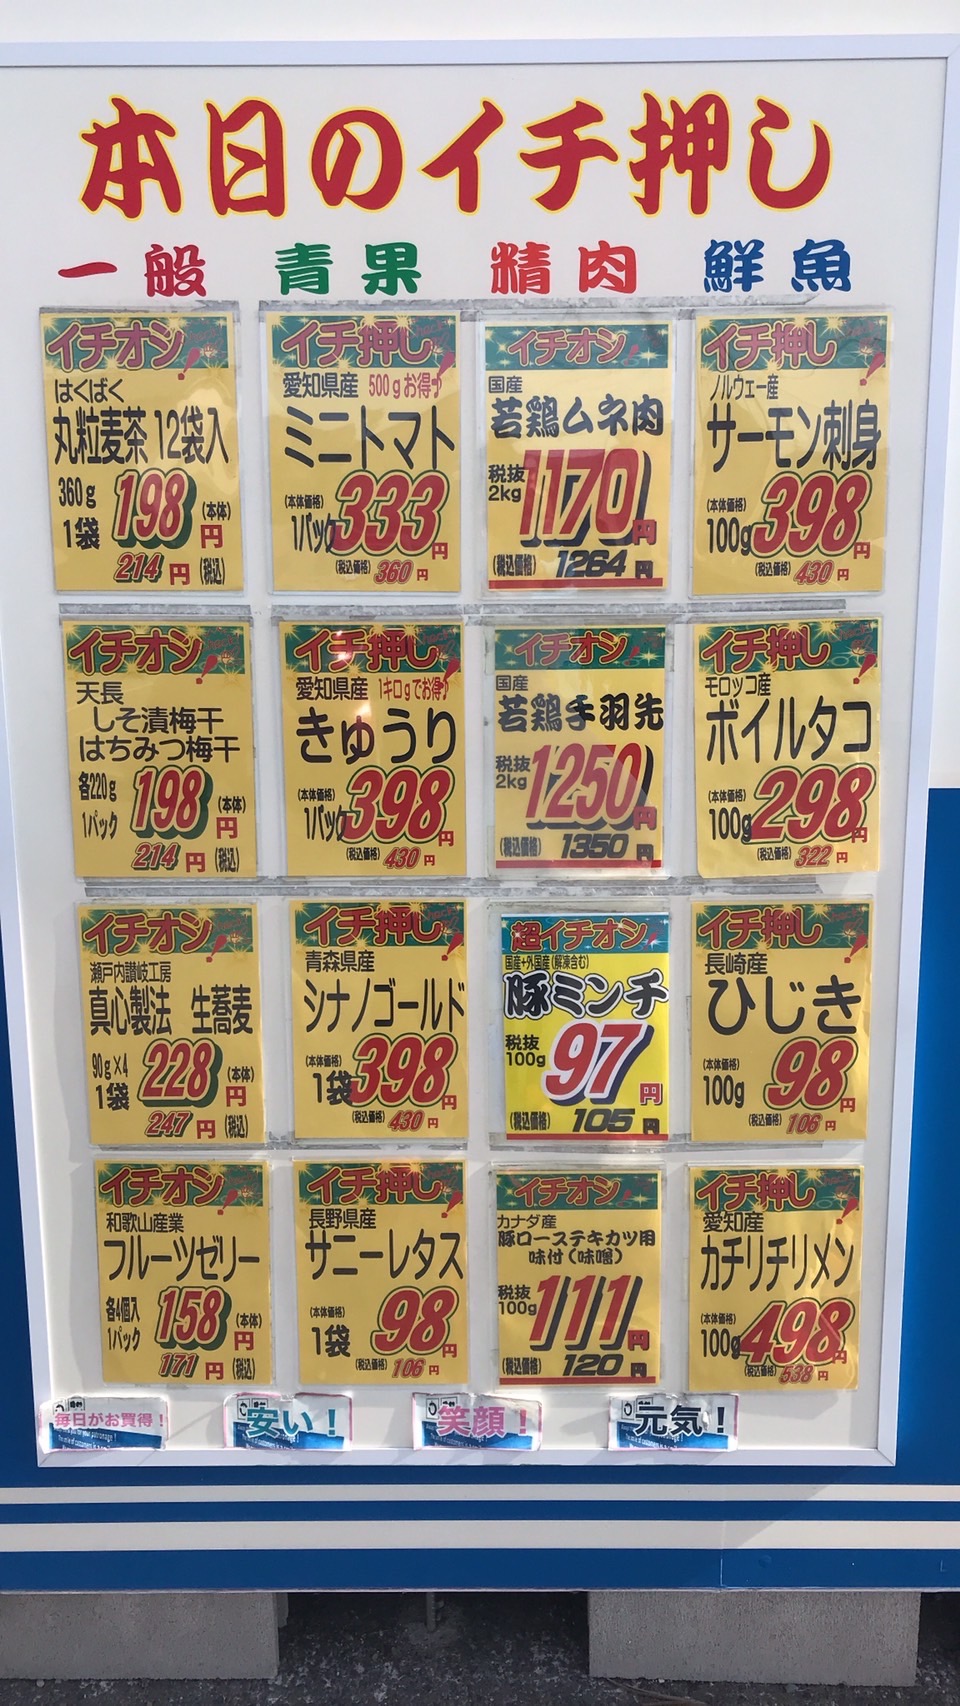 本日のイチ押し
一般 青果 精肉 鮮魚
イチオシ!
はくばく
丸粒麦茶 12袋入
360g
1袋
198円(本体)
214円(税込)
イチ押し!
愛知県産 500gお得♪
ミニトマト
(本体価格)
1パック
333円
(税込価格) 360円
イチオシ!
国産
若鶏ムネ肉
税抜
2kg
1170円
(税込価格) 1264円
イチ押し!
ノルウェー産
サーモン刺身
(本体価格)
100g
398円
(税込価格) 430円
イチオシ!
天長
しそ漬梅干
はちみつ梅干
各220g
1パック
198円(本体)
214円(税込)
イチ押し!
愛知県産 1キロgでお得♪
きゅうり
(本体価格)
1パック
398円
(税込価格) 430円
イチオシ!
国産
若鶏手羽先
税抜
2kg
1250円
(税込価格) 1350円
イチ押し!
モロッコ産
ボイルタコ
(本体価格)
100g
298円
(税込価格) 322円
イチオシ!
瀬戸内讃岐工房
真心製法 生蕎麦
90g×4
1袋
228円(本体)
247円(税込)
イチ押し!
青森県産
シナノゴールド
(本体価格)
1袋
398円
(税込価格) 430円
超イチオシ!
国産+外国産(解凍含む)
豚ミンチ
税抜
100g
97円
(税込価格) 105円
イチ押し!
長崎産
ひじき
(本体価格)
100g
98円
(税込価格) 106円
イチオシ!
和歌山産業
フルーツゼリー
各4個入
1パック
158円(本体)
171円(税込)
イチ押し!
長野県産
サニーレタス
(本体価格)
1袋
98円
(税込価格) 106円
イチオシ!
カナダ産
豚ローステキカツ用
味付(味噌)
税抜
100g
111円
(税込価格) 120円
イチ押し!
愛知産
カチリチリメン
(本体価格)
100g
498円
(税込価格) 538円
毎日がお買得！
安い！
笑顔！
元気！